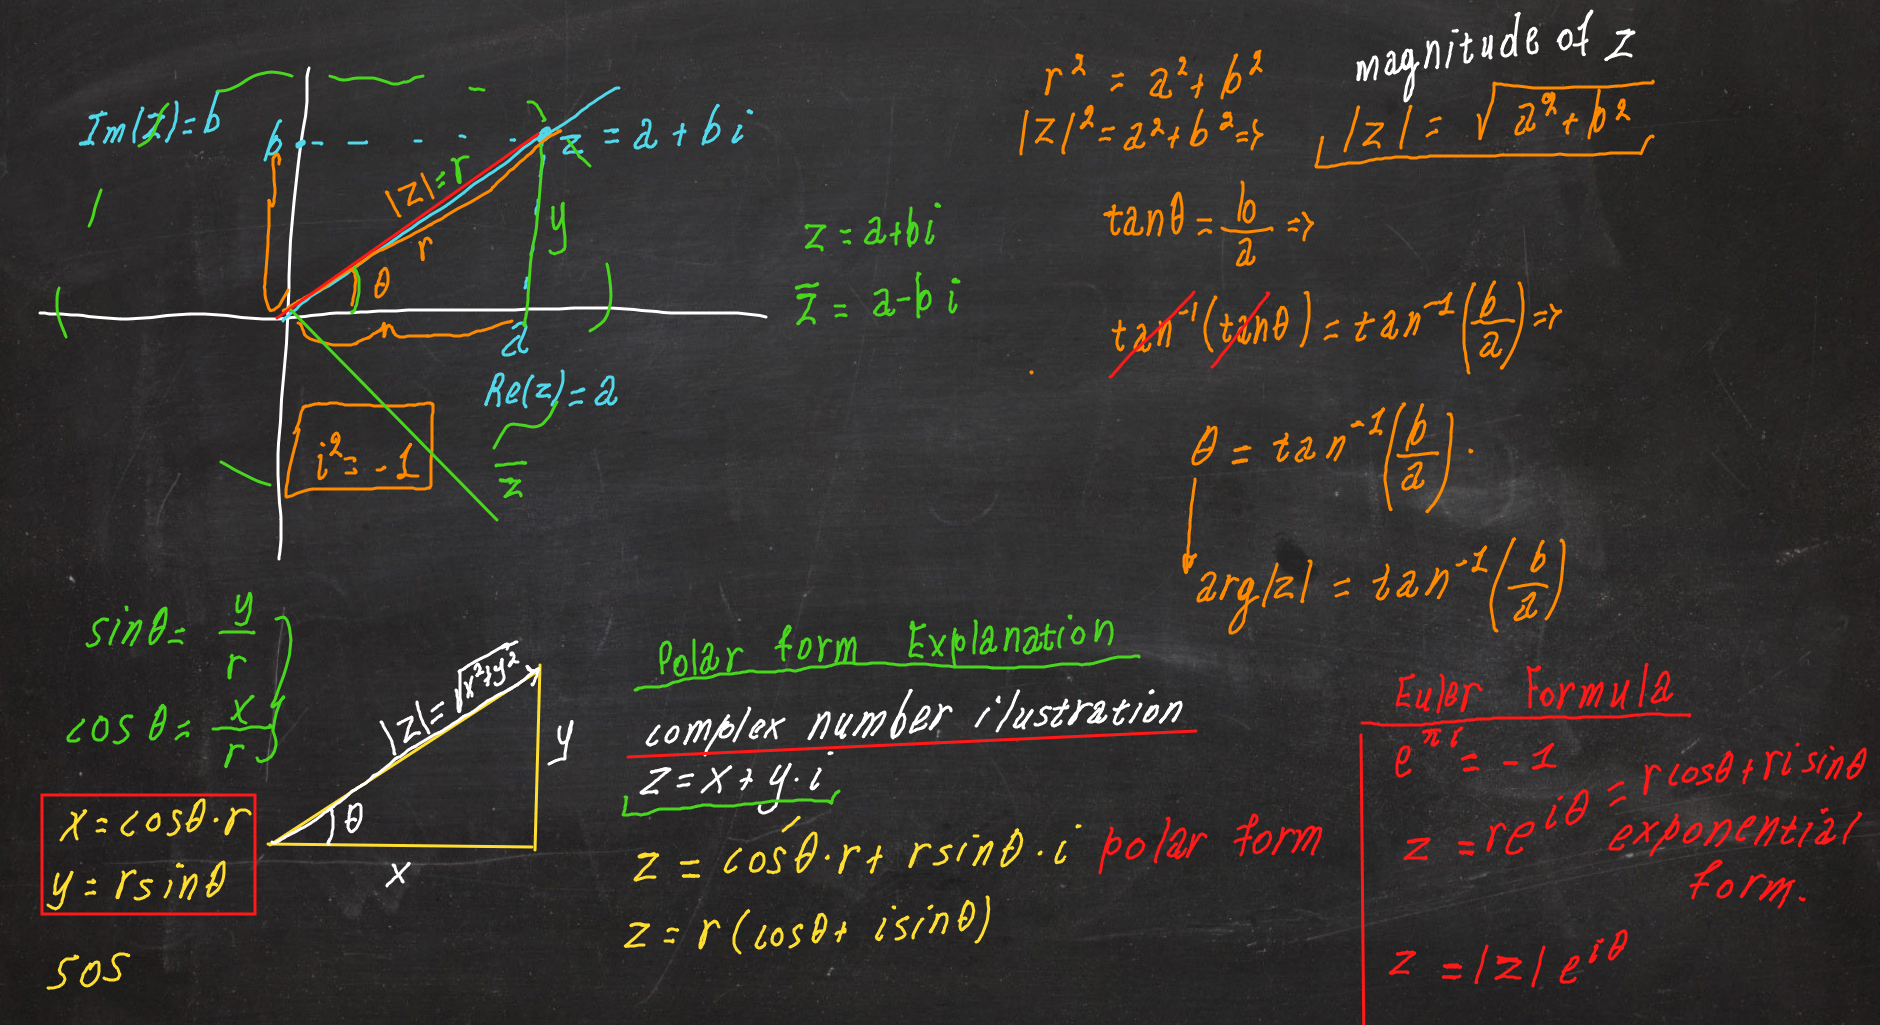 Im(z)=b
b
z = a + bi
|z|=r
r
θ
y
a
Re(z)=a
z̅
i²=-1
z = a+bi
z̅ = a-bi
r² = a²+b²
|z|²=a²+b² =>
magnitude of z
|z| = √a²+b²
tanθ = b/a =>
tan⁻¹(tanθ) = tan⁻¹(b/a) =>
θ = tan⁻¹(b/a).
arg|z| = tan⁻¹(b/a)
sinθ= y/r
cosθ= x/r
x=cosθ·r
y=rsinθ
sos
|z|=√x²+y²
y
θ
x
Polar form Explanation
complex number ilustration
z=x+y·i
z = cosθ·r+ rsinθ·i polar form
z=r(cosθ+ isinθ)
Euler Formula
e^πi = -1
z = re^iθ = rcosθ+risinθ
exponential
form.
z = |z|e^iθ